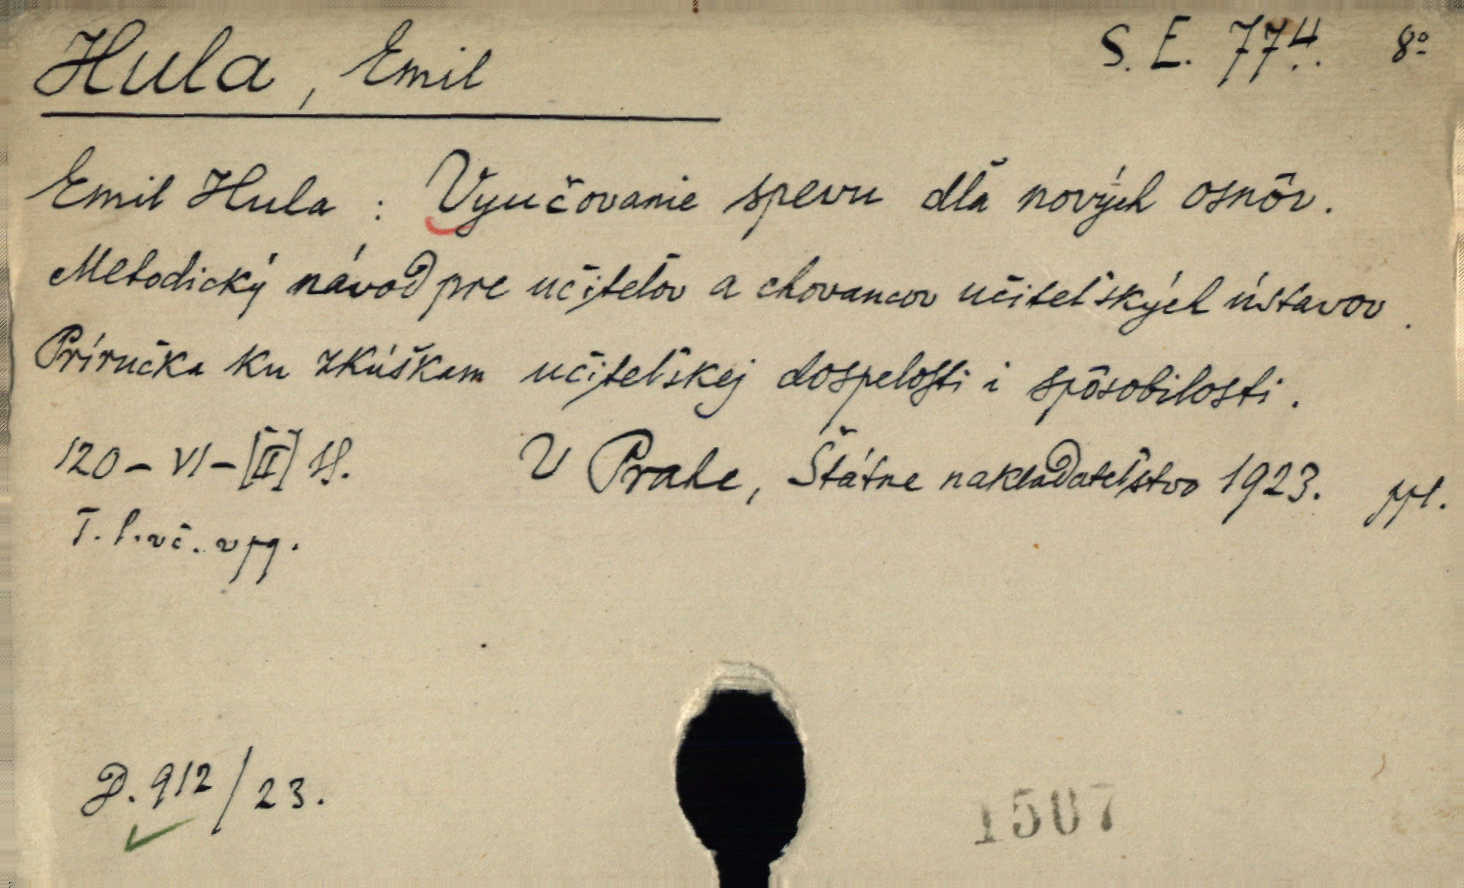 Hula, Emil S. E. 774. 8°
Emil Hula : Vyučovanie spevu dľa nových osnôv.
Metodický návod pre učiteľov a chovancov učiteľských ústavov.
Príručka ku zkúškam učiteľskej dospelosti i spôsobilosti.
120 - VI - [II] S. V Prahe, Štátne nakladateľstvo 1923. ppl.
T. l. vč. v pg.
D. 912/23.
1507